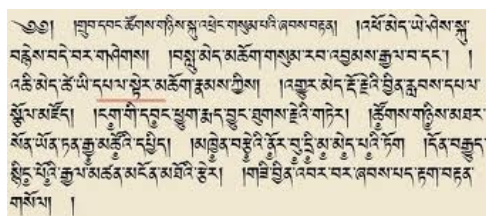 ༄༅། །གྲུབ་དབང་ཚོགས་གཉིས་སྐུ་འཕྲེང་གསུམ་པའི་ཞབས་བརྟན། །འཕོ་མེད་ཡེ་ཤེས་སྐུ་
བརྙེས་བདེ་བར་གཤེགས། །བསླུ་མེད་མཆོག་གསུམ་རབ་འབྱམས་རྒྱལ་བ་དང་། །
འཆི་མེད་ཚེ་ཡི་དཔལ་སྟེར་མཆོག་རྣམས་ཀྱིས། །འགྱུར་མེད་རྡོ་རྗེའི་བྱིན་རླབས་དཔལ་
སྩོལ་མཛོད། །ངག་གི་དབང་ཕྱུག་རྨད་བྱུང་ཐུགས་རྗེའི་གཏེར། །ཚོགས་གཉིས་མཐར་
སོན་ཡོན་ཏན་རྒྱ་མཚོའི་དཔྱིད། །མཁྱེན་བརྩེའི་ནོར་བུ་དྲི་མ་མེད་པའི་ཏོག །དོན་བརྒྱུད་
སྙིང་པོའི་རྒྱལ་མཚན་མངོན་མཐོའི་རྩེར། །གཟི་བྱིན་འབར་བར་ཞབས་པད་རྟག་བརྟན་
གསོལ། །